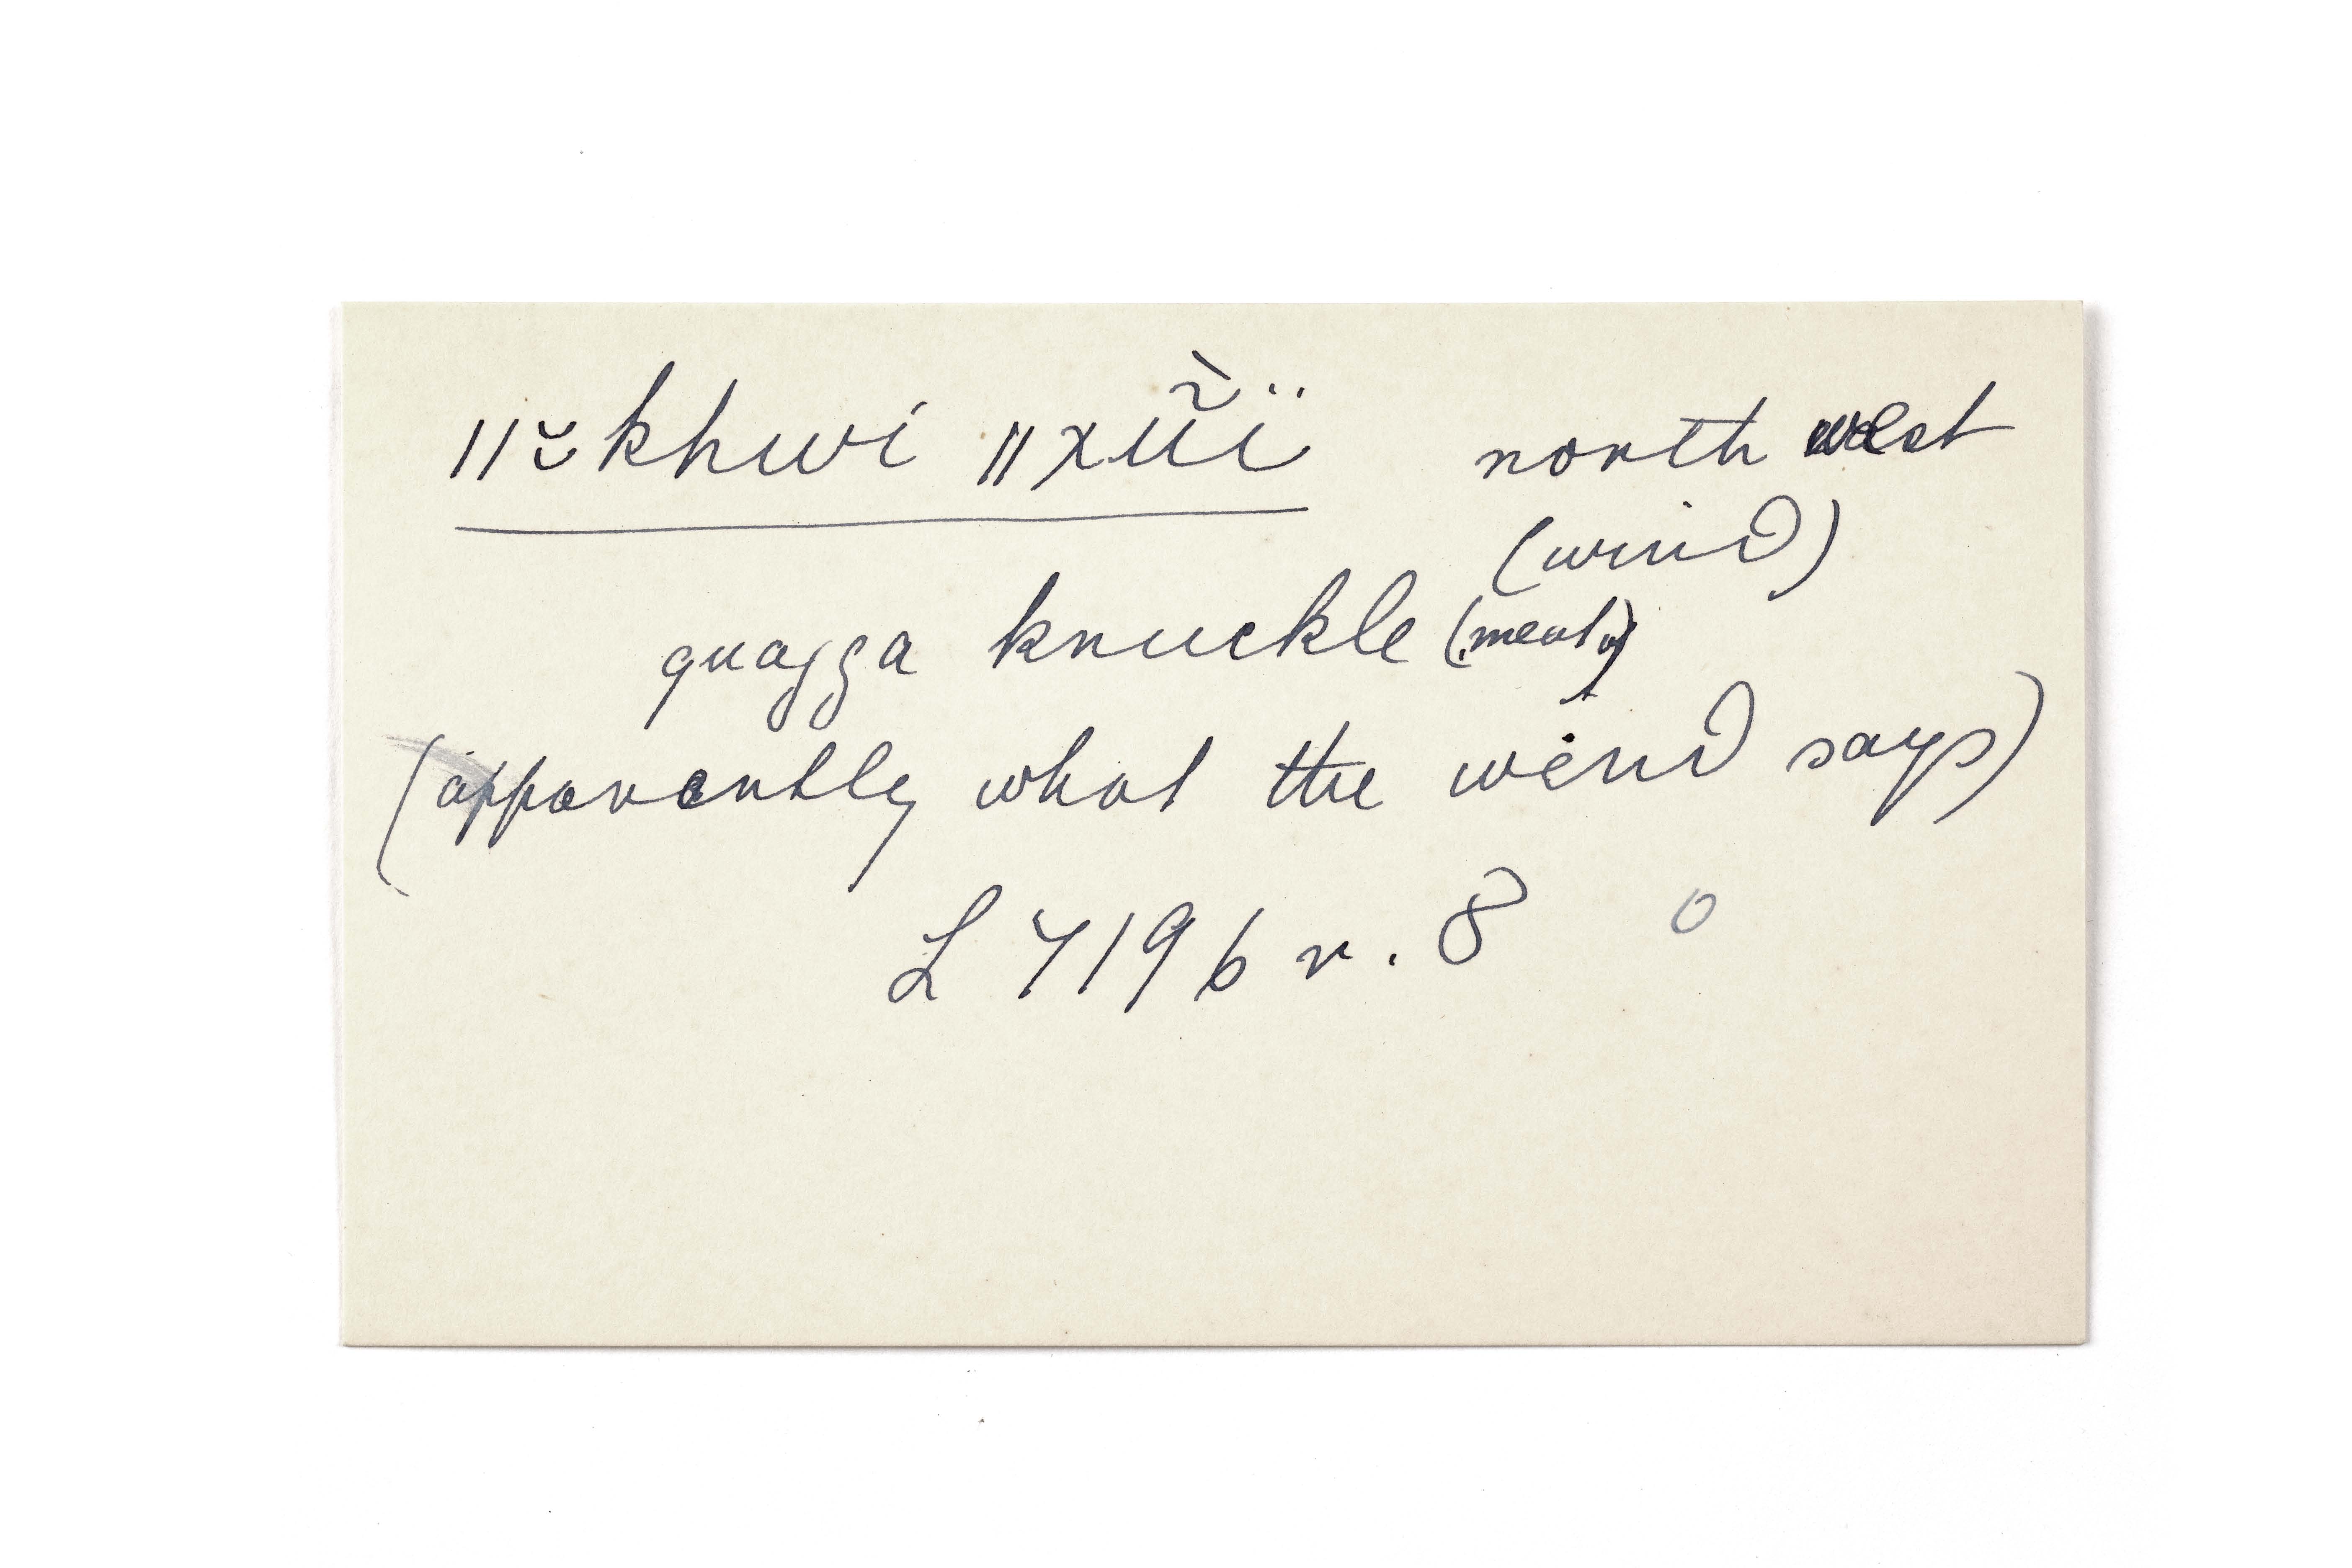 ǁ˘khwi ǁxū̆̀ï north west
(wind)
quagga knuckle (meat)
(apparently what the wind says)
L 7196 r. 8 0